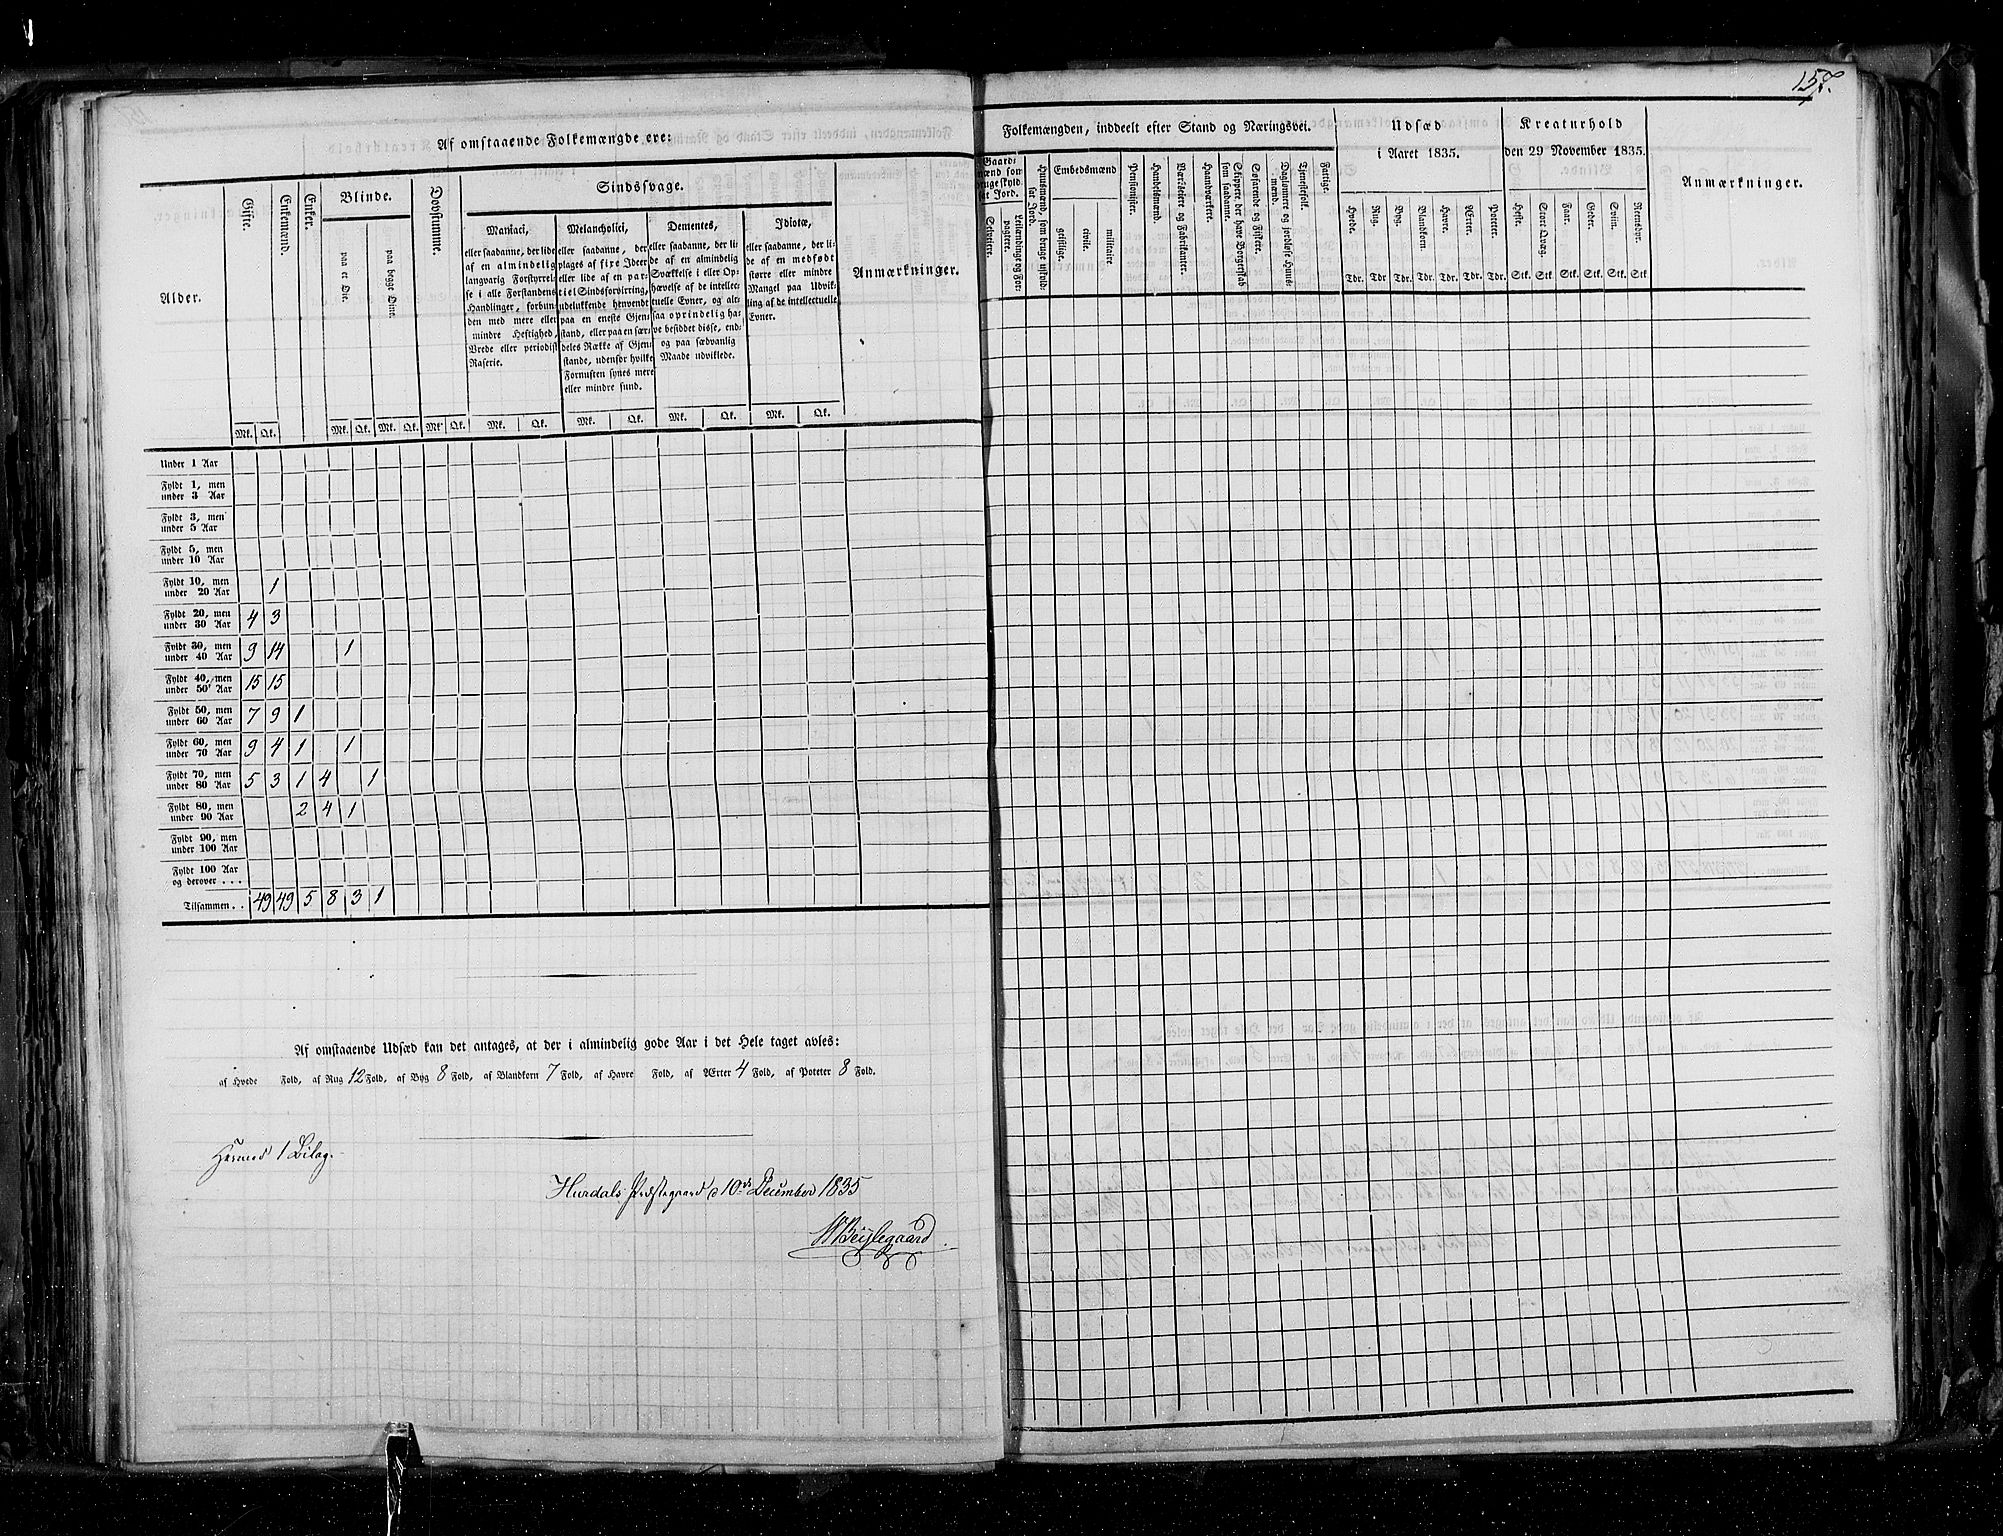 157.
Af omstaaende Folkemængde ere:
Alder.
Gifte.
Enkemænd.
Enker.
Blinde.
paa et Øie.
paa begge Øine.
Døvstumme.
Sindssvage.
Maniaci,
eller saadanne, der lide
af en almindelig
langvarig Forstyrrel-
se i alle Forstandens
Handlinger, forbun-
den med mere eller
mindre Heftighed,
Vrede eller periodisk
Raserie.
Melancholici,
eller saadanne, der
plages af fixe Ideer
eller lide af en par-
tiel Sindsforvirring,
udelukkende henvendt
paa en eneste Gjen-
stand, eller paa en sær-
deles Række af Gjen-
stande, udenfor hvilke
Fornuften synes mere
eller mindre sund.
Dementes,
eller saadanne, der li-
de af en almindelig
Svækkelse i eller Op-
hævelse af de intellec-
tuelle Evner, og alt-
saa oprindelig ha-
ve besiddet disse, end-
og paa sædvanlig
Maade udviklede.
Idiotæ,
eller saadanne, der li-
de af en medfødt
større eller mindre
Mangel paa Udvik-
ling af de intellectuelle
Evner.
Anmærkninger.
Mk. Qk. Mk. Qk. Mk. Qk. Mk. Qk. Mk. Qk. Mk. Qk. Mk. Qk. Mk. Qk.
Under 1 Aar
Fyldt 1, men
under 3 Aar
Fyldt 3, men
under 5 Aar
Fyldt 5, men
under 10 Aar
Fyldt 10, men
under 20 Aar 1
Fyldt 20, men
under 30 Aar 4 3
Fyldt 30, men
under 40 Aar 9 14 1
Fyldt 40, men
under 50 Aar 15 15
Fyldt 50, men
under 60 Aar 7 9 1
Fyldt 60, men
under 70 Aar 9 4 1 1
Fyldt 70, men
under 80 Aar 5 3 1 4 1
Fyldt 80, men
under 90 Aar 2 4 1
Fyldt 90, men
under 100 Aar
Fyldt 100 Aar
og derover . . .
Tilsammen . . 49 49 5 8 3 1
Af omstaaende Udsæd kan det antages, at der i almindelig gode Aar i det Hele taget avles:
af Hvede Fold, af Rug 12 Fold, af Byg 8 Fold, af Blandkorn 7 Fold, af Havre Fold, af Ærter 4 Fold, af Poteter 8 Fold.
Hermed 1 Bilag.
Hurdals Præstegaard d 10de December 1835
Folkemængden, inddeelt efter Stand og Næringsvei.
Gaard-
mænd som
bruge skyld-
sat Jord.
Selveiere.
Leilændinge og For-
pagtere.
Huusmænd, som bruge uskyld-
sat Jord.
Embedsmænd
geistlige.
civile.
militaire.
Pensionister.
Handelsmænd.
Værkseiere og Fabrikanter.
Haandværkere.
Skippere, der have Borgerskab
som saadanne.
Søfarende og Fiskere.
Daglønnere og jordløse Huus-
mænd.
Tjenestefolk.
Fattige.
Udsæd
i Aaret 1835.
Hvede.
Rug.
Byg.
Blandkorn.
Havre.
Ærter.
Poteter.
Tdr. Tdr. Tdr. Tdr. Tdr. Tdr. Tdr.
Kreaturhold
den 29 November 1835.
Heste.
Stort Qvæg.
Faar.
Geder.
Sviin.
Rensdyr.
Stk. Stk. Stk. Stk. Stk. Stk.
Anmærkninger.